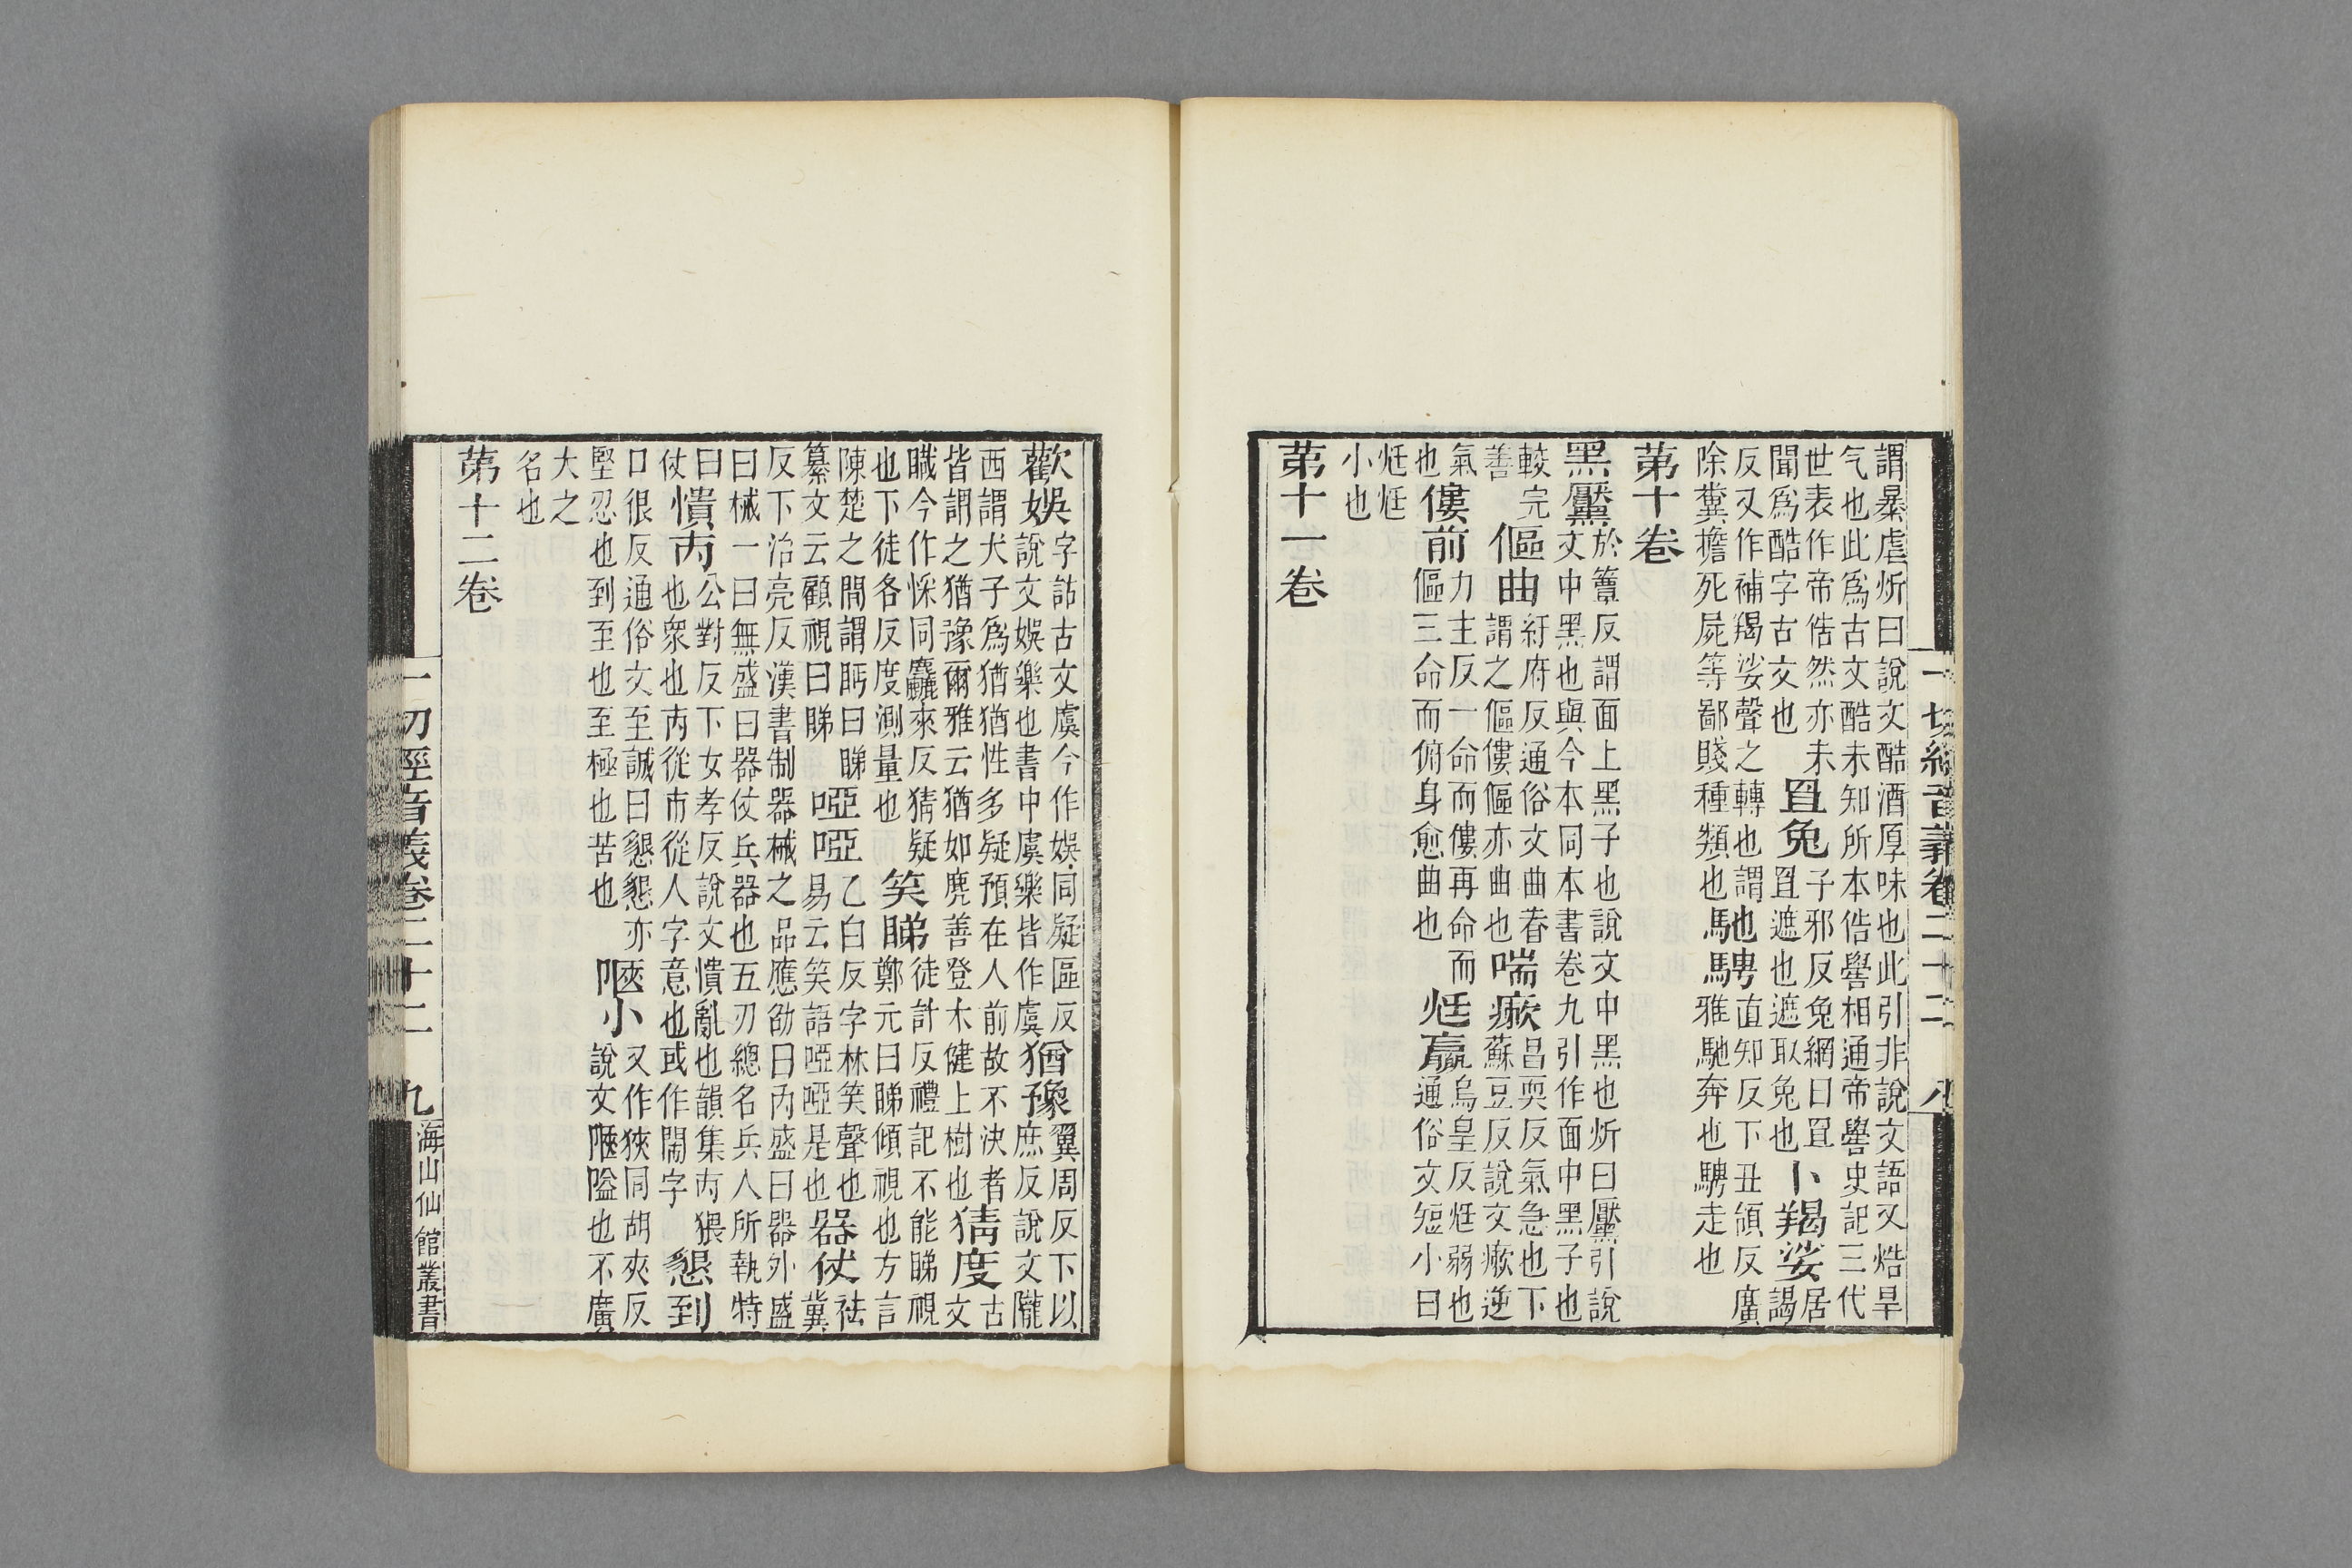 一切經音義卷二十二 八
謂暴虐炘曰說文酷酒厚味也此引非說文語又焅旱
气也此爲古文酷未知所本俈嚳相通帝嚳史記三代
世表作帝俈然亦未
聞爲酷字古文也
罝兔
子邪反兔網曰罝
罝遮也遮取兔也
卜羯娑
居
謁
反又作補羯娑聲之轉也謂
除糞擔死屍等鄙賤種類也
馳騁
直知反下丑領反廣
雅馳奔也騁走也
第十卷
黑黶
於簟反謂面上黑子也說文中黑也炘曰黶引說
文中黑也與今本同本書卷九引作面中黑子也
較完
善
傴曲
紆府反通俗文曲脊
謂之傴僂傴亦曲也
喘瘶
昌耎反氣急也下
蘇豆反說文瘶逆
氣
也
僂前
力主反一命而僂再命而
傴三命而俯身愈曲也
尪羸
烏皇反尪弱也
通俗文短小曰
尪尪
小也
第十一卷
歡娛
字詁古文虞今作娛同疑區反
說文娛樂也書中虞樂皆作虞
猶豫
翼周反下以
庶反說文隴
西謂犬子爲猶猶性多疑預在人前故不決者
皆謂之猶豫爾雅云猶如麂善登木健上樹也
猜度
古
文
今作倸同麤來反猜疑
也下徒各反度測量也
笑睇
徒計反禮記不能睇視
鄭元曰睇傾視也方言
陳楚之間謂眄曰睇
纂文云顧視曰睇
啞啞
乙白反字林笑聲也
易云笑語啞啞是也
器仗
祛
冀
反下治亮反漢書制器械之品應劭曰內盛曰器外盛
曰械一曰無盛曰器仗兵器也五刃總名兵人所執特
曰
仗
憒㕯
公對反下女孝反說文憒亂也韻集㕯猥
也衆也㕯從市從人字意也或作閙字
懇到
口很反通俗文至誠曰懇懇亦
堅忍也到至也至極也苦也
陿小
又作狹同胡夾反
說文陿隘也不廣
大之
名也
第十二卷
一切經音義卷二十二 九 海山仙館叢書